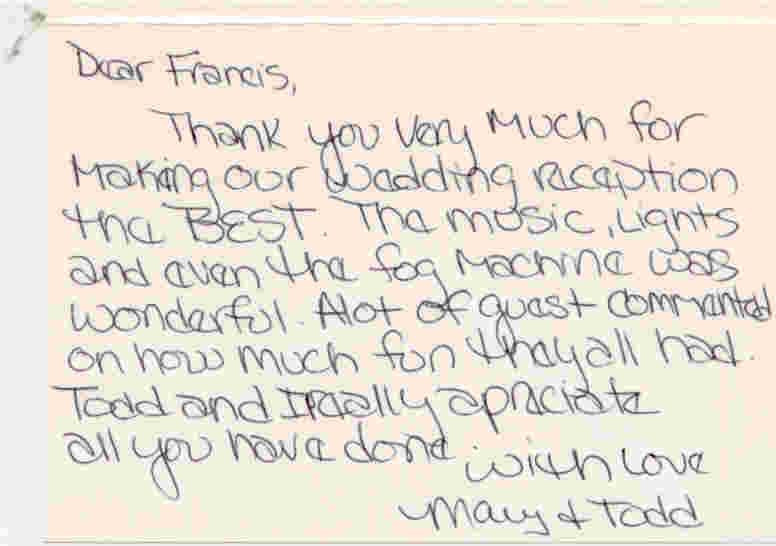 Dear Francis,
Thank you Very Much for
Making our Wedding reception
the BEST. The music, Lights
and even the fog Machine was
wonderful. Alot of guest commented
on how much fun they all had.
Todd and I really apreciate
all you have done.
with Love
Mary & Todd